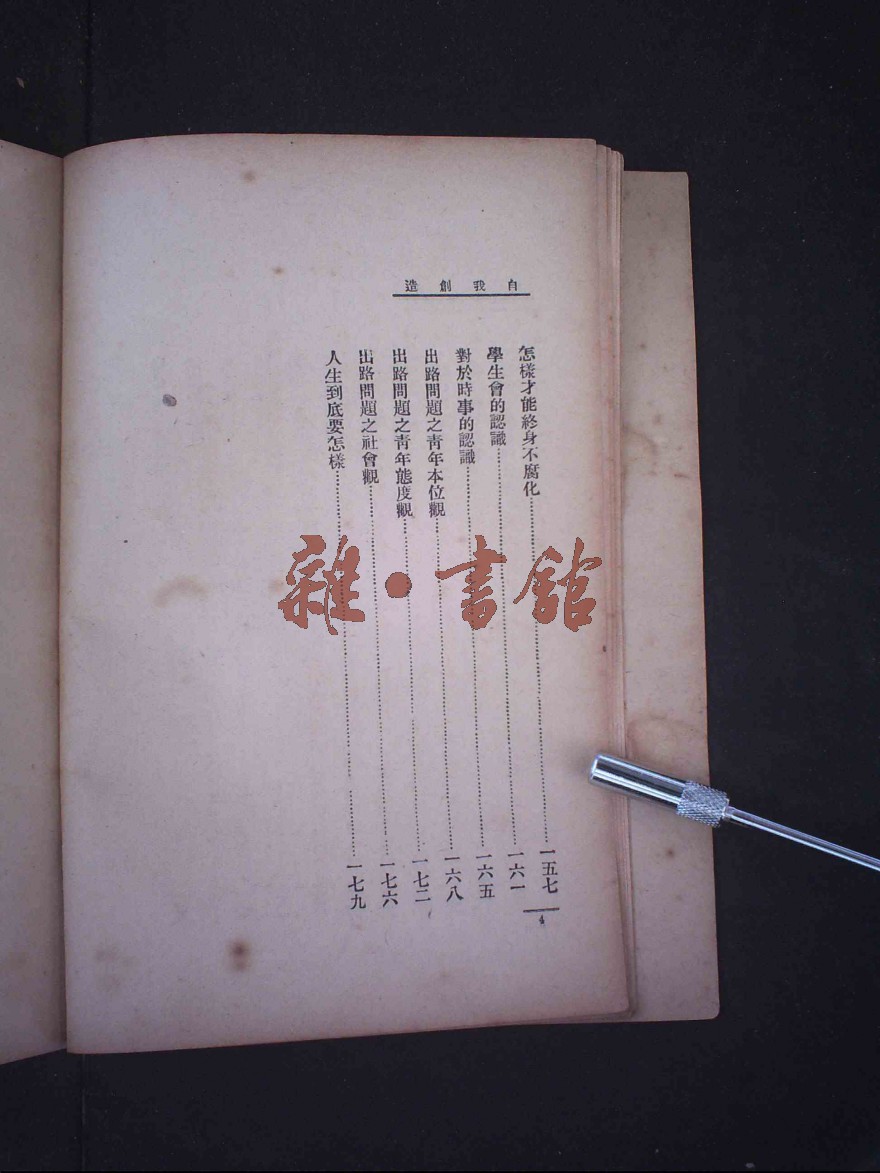 自我創造
怎樣才能終身不腐化……一五七
學生會的認識……一六一
對於時事的認識……一六五
出路問題之靑年本位觀……一六八
出路問題之靑年態度觀……一七二
出路問題之社會觀……一七六
人生到底要怎樣……一七九
4
雜·書館